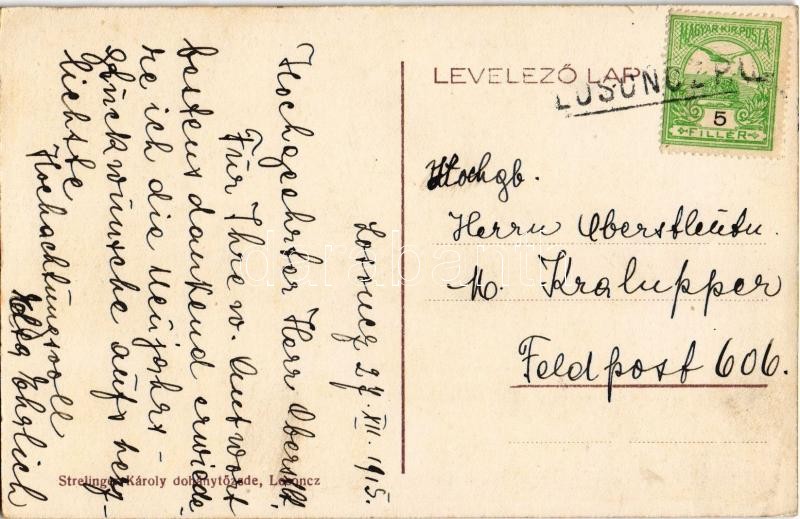 LEVELEZŐ LAP
MAGYAR KIR. POSTA
5
FILLÉR
LOSONCZ
Hochgb.
Herrn Oberstleutn.
M. Kralupper
Feldpost 606.
Losoncz 27. XII. 1915.
Hochgeehrter Herr Oberstlt.
Für Ihre w. Antwort
bestens dankend erwiede-
re ich die Neujahrs-
glückwünsche aufs herz-
lichste
Hochachtungsvoll
Ehrlich
Strelinger Károly dohánytőzsde, Losoncz
darabanth